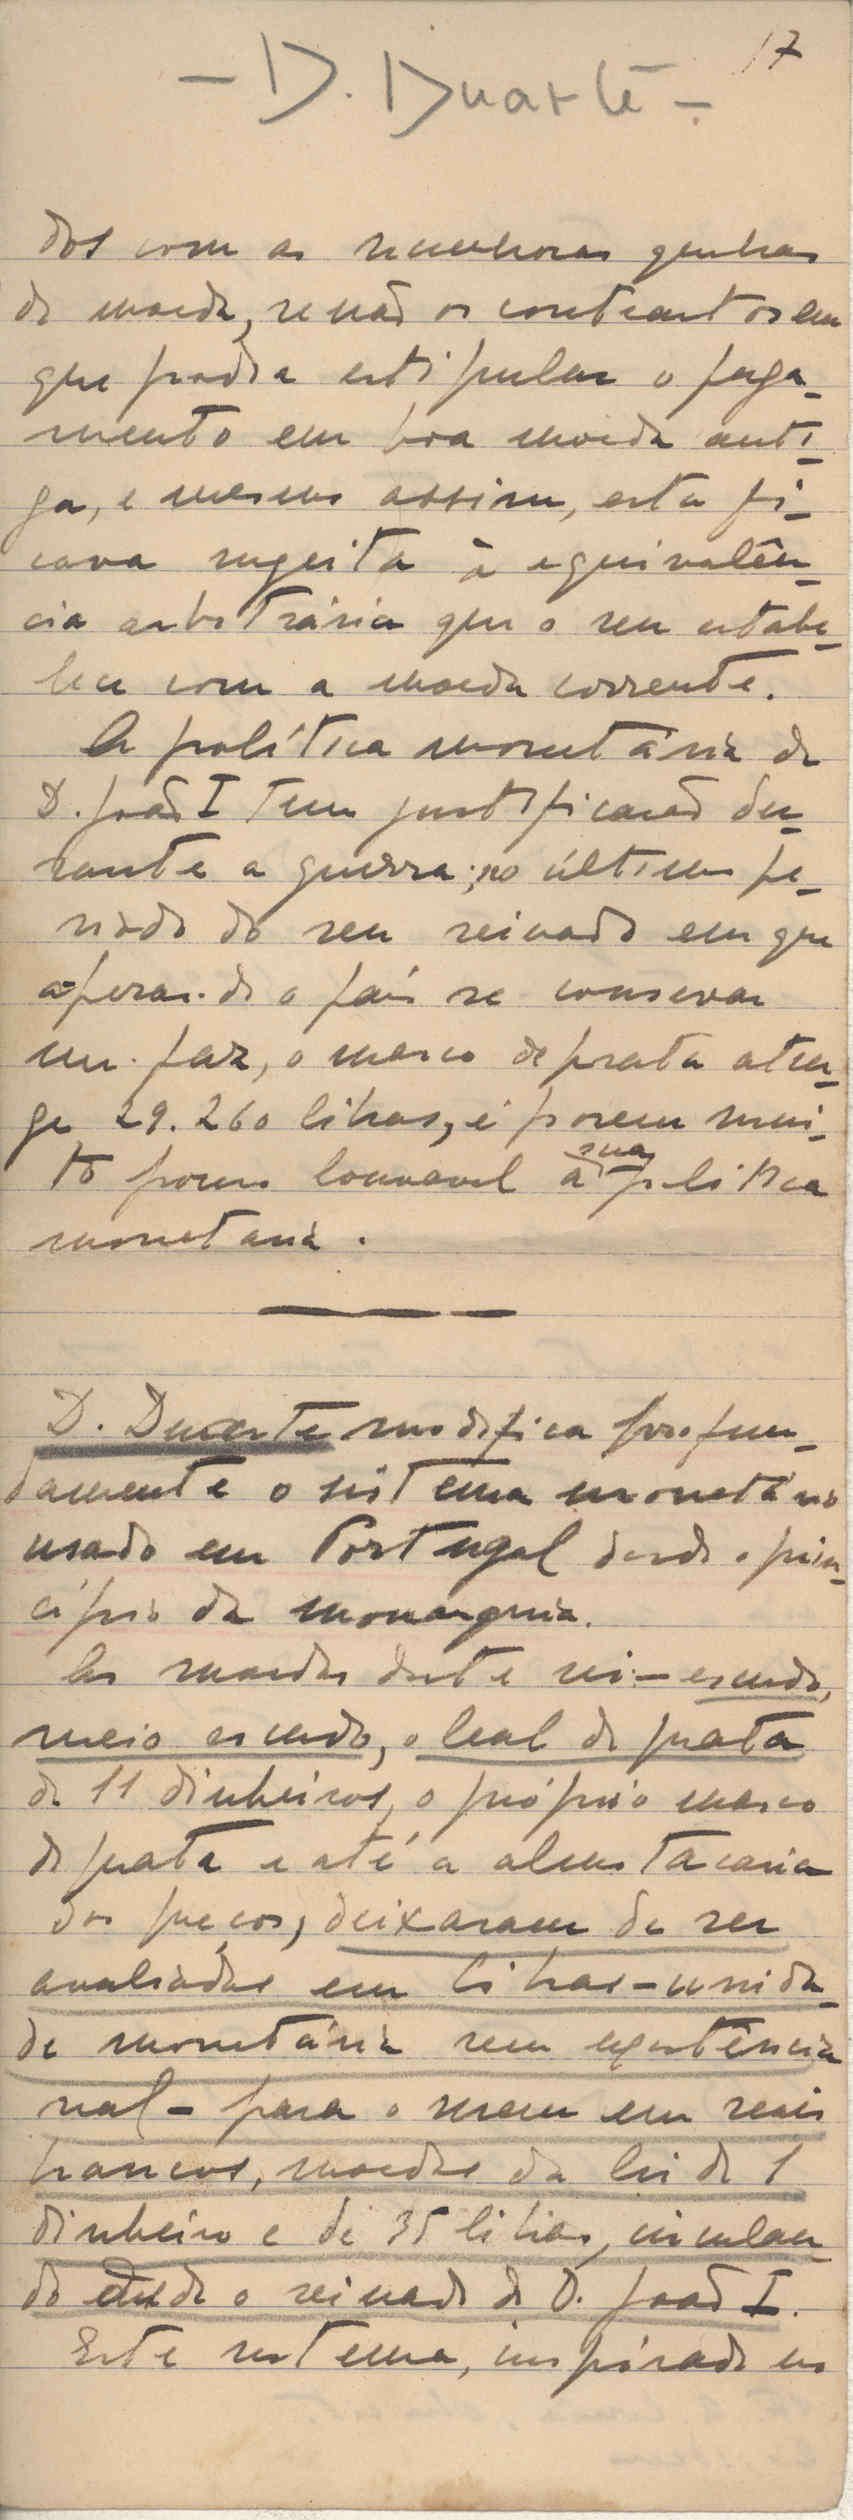 17
- D. Duarte -
dos com as successoras quebras
da moeda, senão os contractos em
que podia estipular o paga-
mento em boa moeda anti-
ga, e mesmo assim, esta fi-
cava sugeita à equivalên-
cia arbitrária que o seu estabe-
lecia com a moeda corrente.
A política monetária de
D. João I tem justificação du-
rante a guerra; no último pe-
riodo do seu reinado em que
apesar de o país se conservar
em paz, o marco de prata atin-
ge 29.260 libras, é porem mui-
to pouco louvavel a sua politica
monetaria.
D. Duarte modifica profun-
damente o sistema monetário
usado em Portugal desde o prin-
cípio da monarquia.
As moedas deste rei - escudo,
meio escudo, o leal de prata
de 11 dinheiros, o próprio marco
de prata e até a almotaçaria
dos preços, deixaram de ser
avaliadas em libras - unida-
de monetária sem existência
real - para o serem em reais
brancos, moedas da lei de 1
dinheiro e de 35 libras, circulan-
do desde o reinado de D. João I.
Este sistema, inspirado no